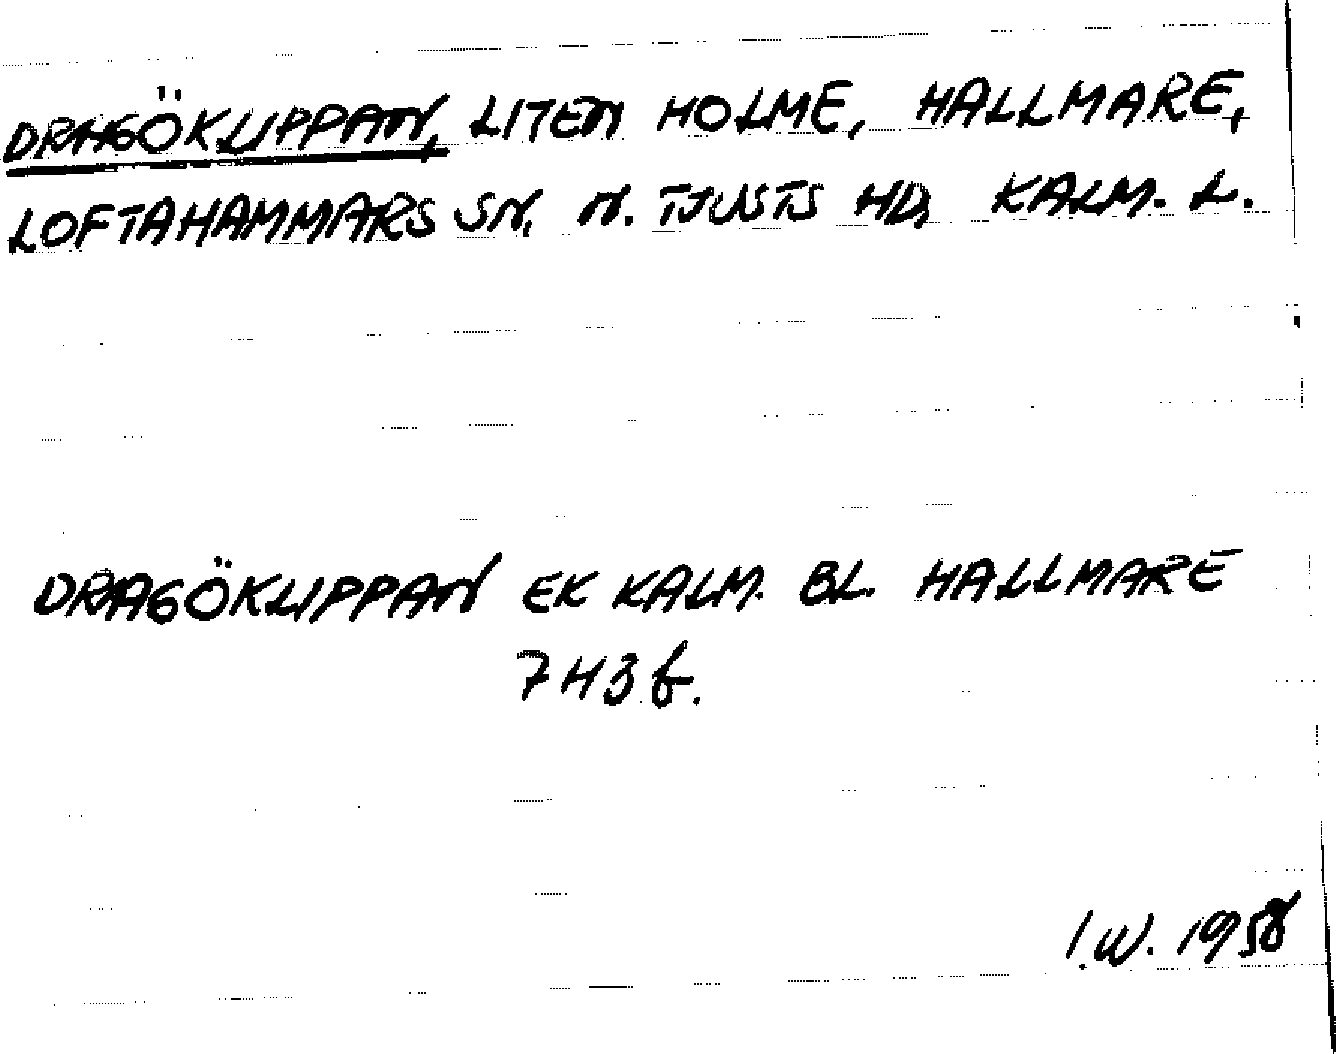 DRAGÖKLIPPAN, LITEN HOLME, HALLMARE,
LOFTAHAMMARS SN, N. TJUSTS HD, KALM. L.
DRAGÖKLIPPAN EK KALM. BL. HALLMARE
7H3f.
I.W. 1958